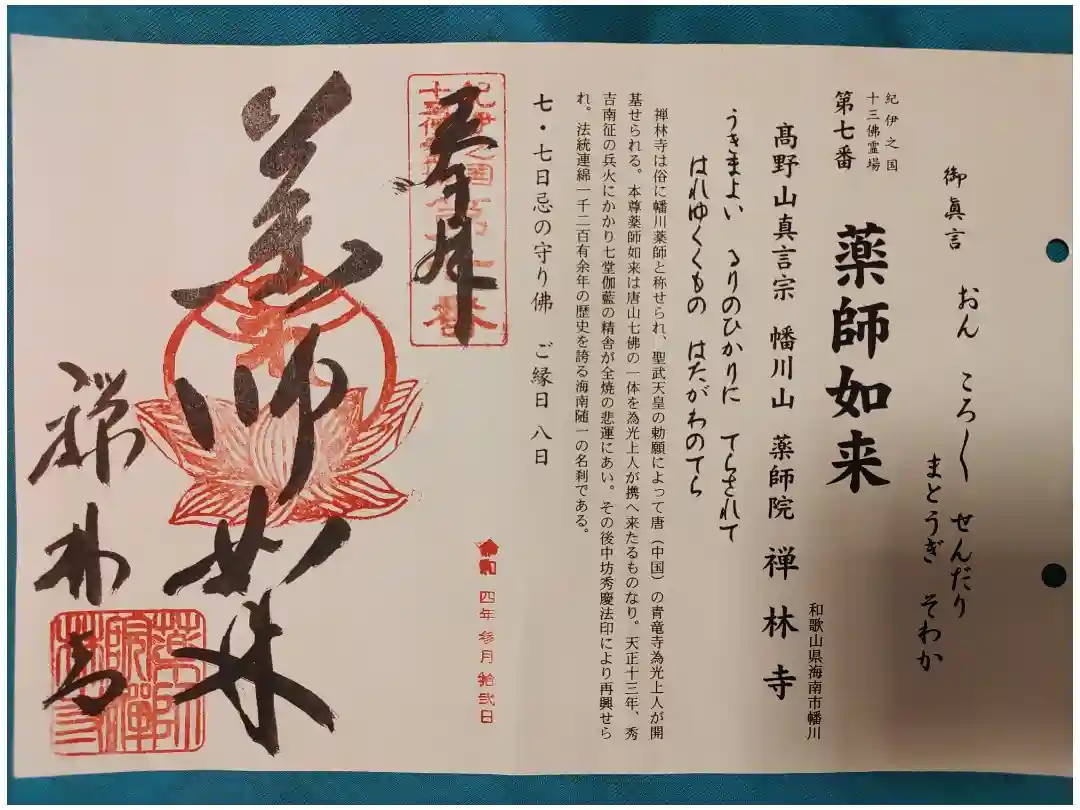 御眞言
おん　ころ〳〵　せんだり
まとうぎ　そわか
紀伊之国
十三佛霊場
第七番
薬師如来
和歌山県海南市幡川
髙野山真言宗　幡川山　薬師院　禅林寺
うきまよい　るりのひかりに　てらされて
はれゆくくもの　はたがわのてら
禅林寺は俗に幡川薬師と称せられ、聖武天皇の勅願によって唐（中国）の青竜寺為光上人が開
基せられる。本尊薬師如来は唐山七佛の一体を為光上人が携へ来たるものなり。天正十三年、秀
吉南征の兵火にかかり七堂伽藍の精舎が全焼の悲運にあい。その後中坊秀慶法印により再興せら
れ。法統連綿一千二百有余年の歴史を誇る海南随一の名刹である。
七・七日忌の守り佛　ご縁日　八日
令和四年参月拾弐日
奉拝
紀伊之國
第七番
薬師如来
禅林寺